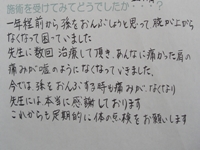 施術を受けてみてどうでしたか・・・?
一年程前から孫をおんぶしようと思って腕が上がら
なくなって困っていました
先生に数回治療して頂き、あんなに痛かった肩の
痛みが嘘のようになくなっていきました。
今では孫をおんぶする時も痛みがなくなり
先生には本当に感謝しております
これからも定期的に体の点検をお願いします